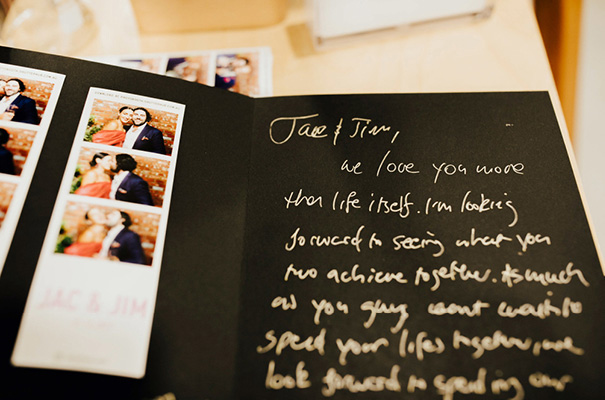 JAC & JIM
Jac & Jim,
we love you more
than life itself. I'm looking
forward to seeing what you
two achieve together. As much
as you guys want wait to
spend your lifes together, we
look forward to spending our